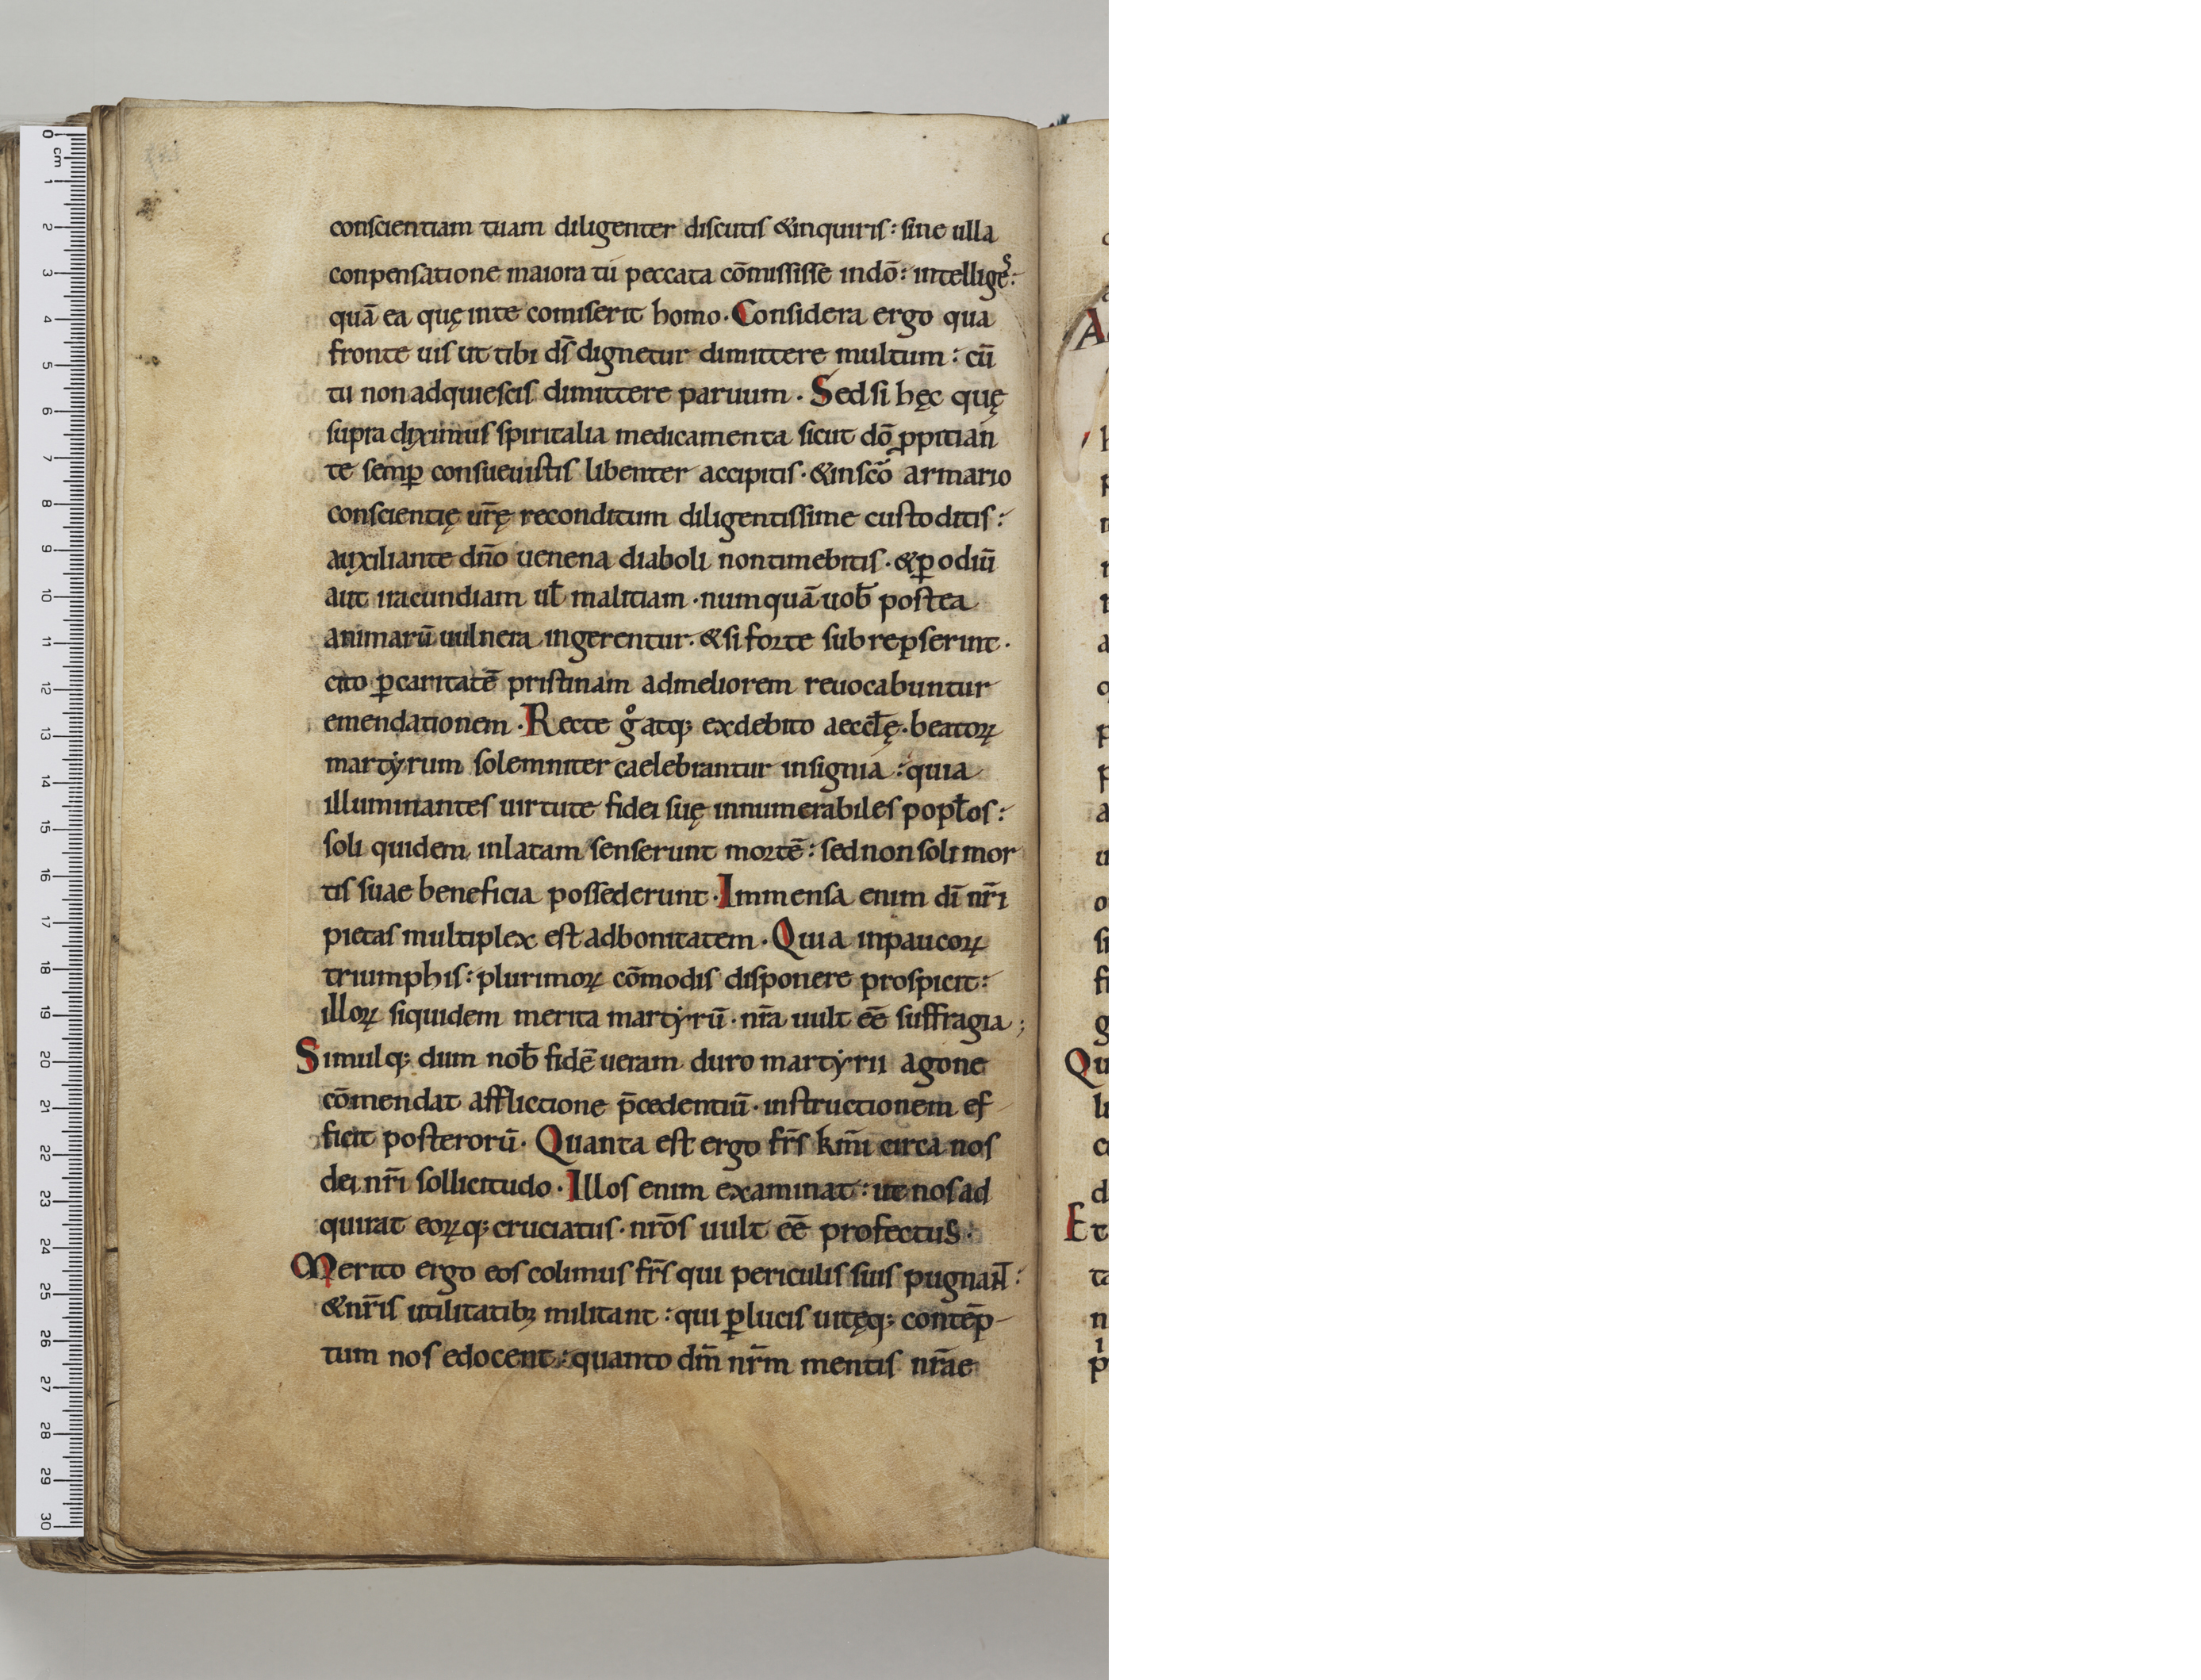 conscientiam tuam diligenter discutis &inquiris: sine ulla
conpensatione maiora tu peccata cōmississe indō: intelliges:
quā ea quę inte comiserit homo. Considera ergo qua
fronte uis ut tibi ds̄ dignetur dimittere multum: cū
tu non adquiescis dimittere paruum. Sed si hęc quę
supra diximus spiritalia medicamenta sicut dō ꝓpitian
te semꝑ consueuistis libenter accipitis. &inscō armario
conscientię ur̄ę reconditum diligentissime custoditis:
auxiliante dn̄o uenena diaboli nontimebitis. &ꝑ odiū
aut iracundiam ul̄ malitiam. numquā uob̄ postea
animarū uulnera ingerentur. &si forte subrepserint.
cito ꝑcaritatē pristinam admeliorem reuocabuntur
emendationem. Recte g̊ atq; exdebito aeccl̄ę. beatoꝝ
martyrum solemniter caelebrantur insignia: quia
illuminantes uirtute fidei suę innumerabiles popl̄os:
soli quidem inlatam senserunt mortē: sed non soli mor
tis suae beneficia possederunt. Immensa enim dī nr̄i
pietas multiplex est adbonitatem. Quia inpaucoꝝ
triumphis: plurimoꝝ cōmodis disponere prospicit:
illoꝝ siquidem merita martyrū. nr̄a uult eē suffragia;
Simulq; dum nob̄ fidē ueram duro martyrii agone
cōmendat afflictione p̄cedentiū. instructionem ef
ficit posterorū. Quanta est ergo fr̄s km̄i circa nos
dei nr̄i sollicitudo. Illos enim examinat: ut nos ad
quirat eoꝝq; cruciatus. nrōs uult eē profectus.
Merito ergo eos colimus fr̄s qui periculis suis pugnant̄:
&nr̄is utilitatibꝫ militant: qui ꝑlucis uitęq; contēp
tum nos edocent: quanto dm̄ nr̄m mentis nr̄ae